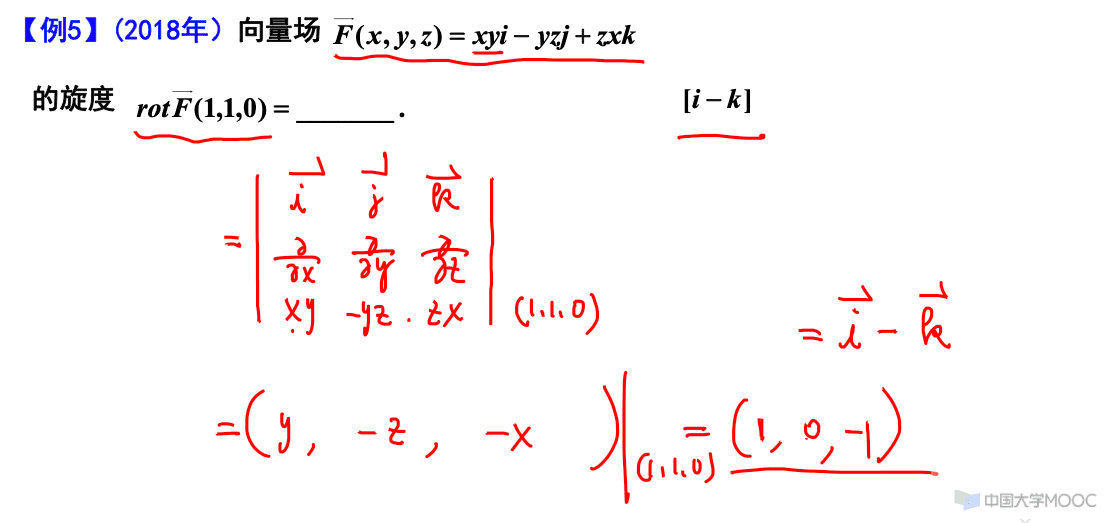 【例5】(2018年) 向量场 F(x,y,z)=xyi-yzj+zxk
的旋度 rotF(1,1,0)=_______. [i-k]
i j k
= ∂/∂x ∂/∂y ∂/∂z
xy -yz. zx (1,1,0)
= i - k
=(y, -z, -x)|(1,1,0) = (1, 0, -1)
中国大学MOOC